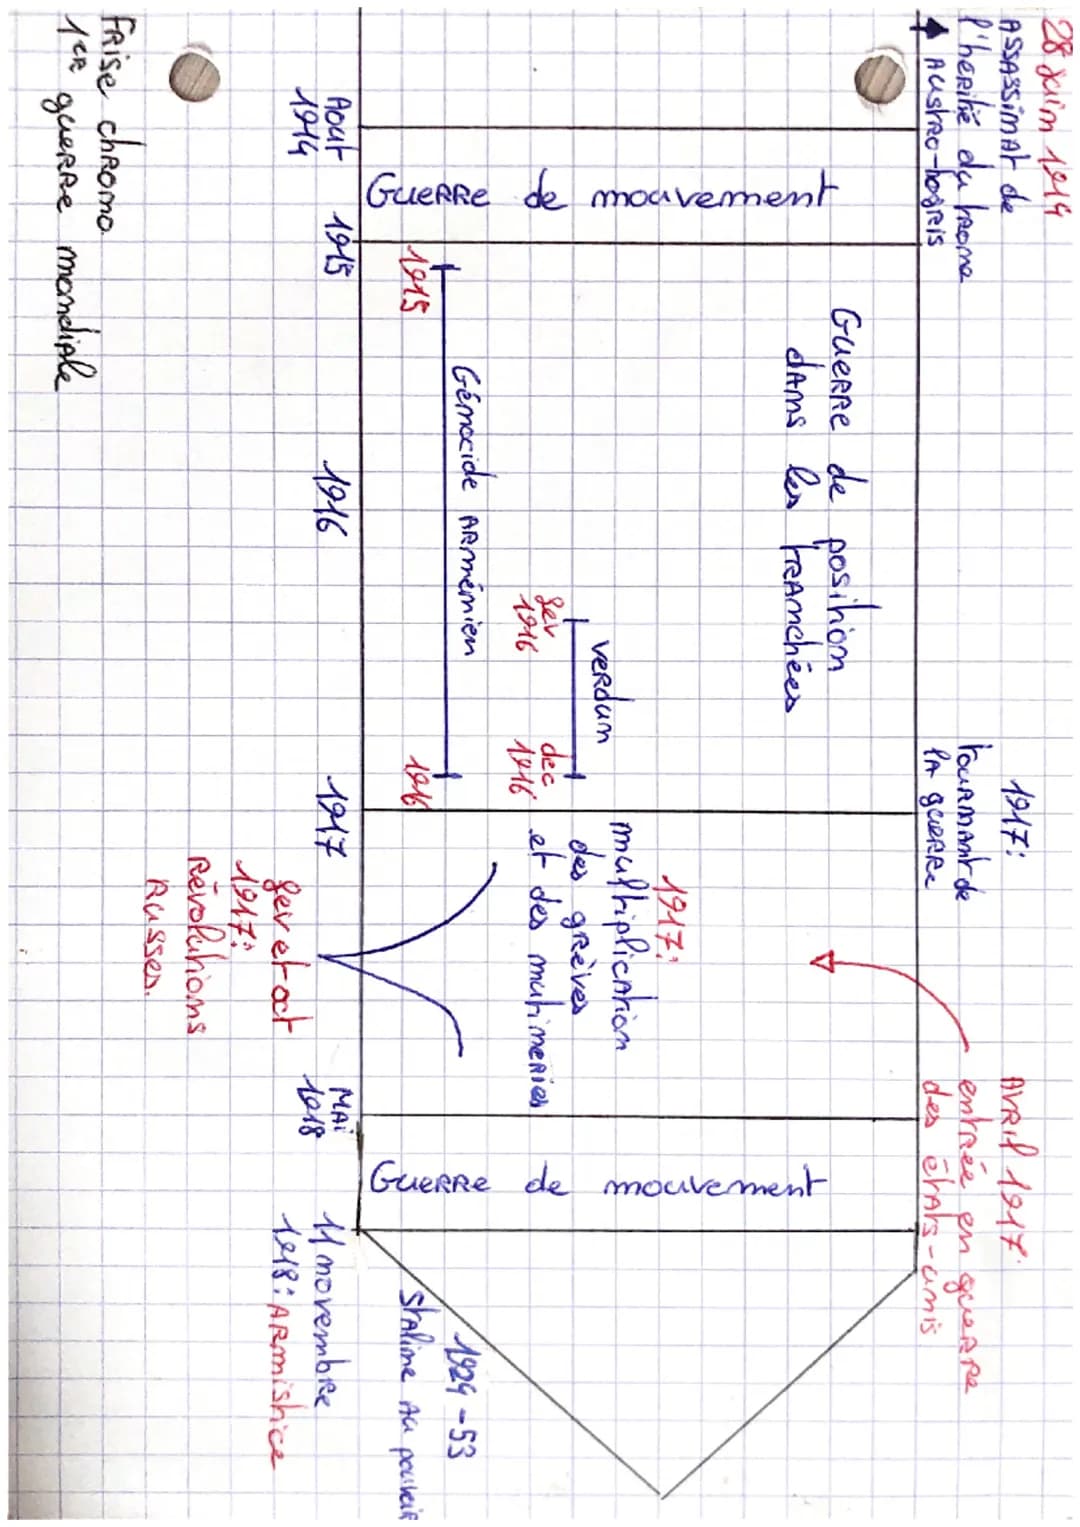 28 Juin 1914
ASSASSINAT de
l'héritié du trone
AUSTRO-hogRis
1917:
tournant de
lA guerre
AVRil 1917.
entrée en guerre
des étAts-unis
Guerre de mouvement
Guerre de position
dAns les trAnchées
verdun
fev
1916
dec
1916
Génocide ARménien
1915
1916
1917:
multiplication
des grèves
et des mutineries
Guerre de mouvement
1924-53
StAline Au pouvoir
Aout
1914
1915
1916
1917
MAi
1918
11 novembre
1918: ARmistice
fev et oct
1917:
Révolutions
Russes.
FRise chrono
1ère guerre mondiale